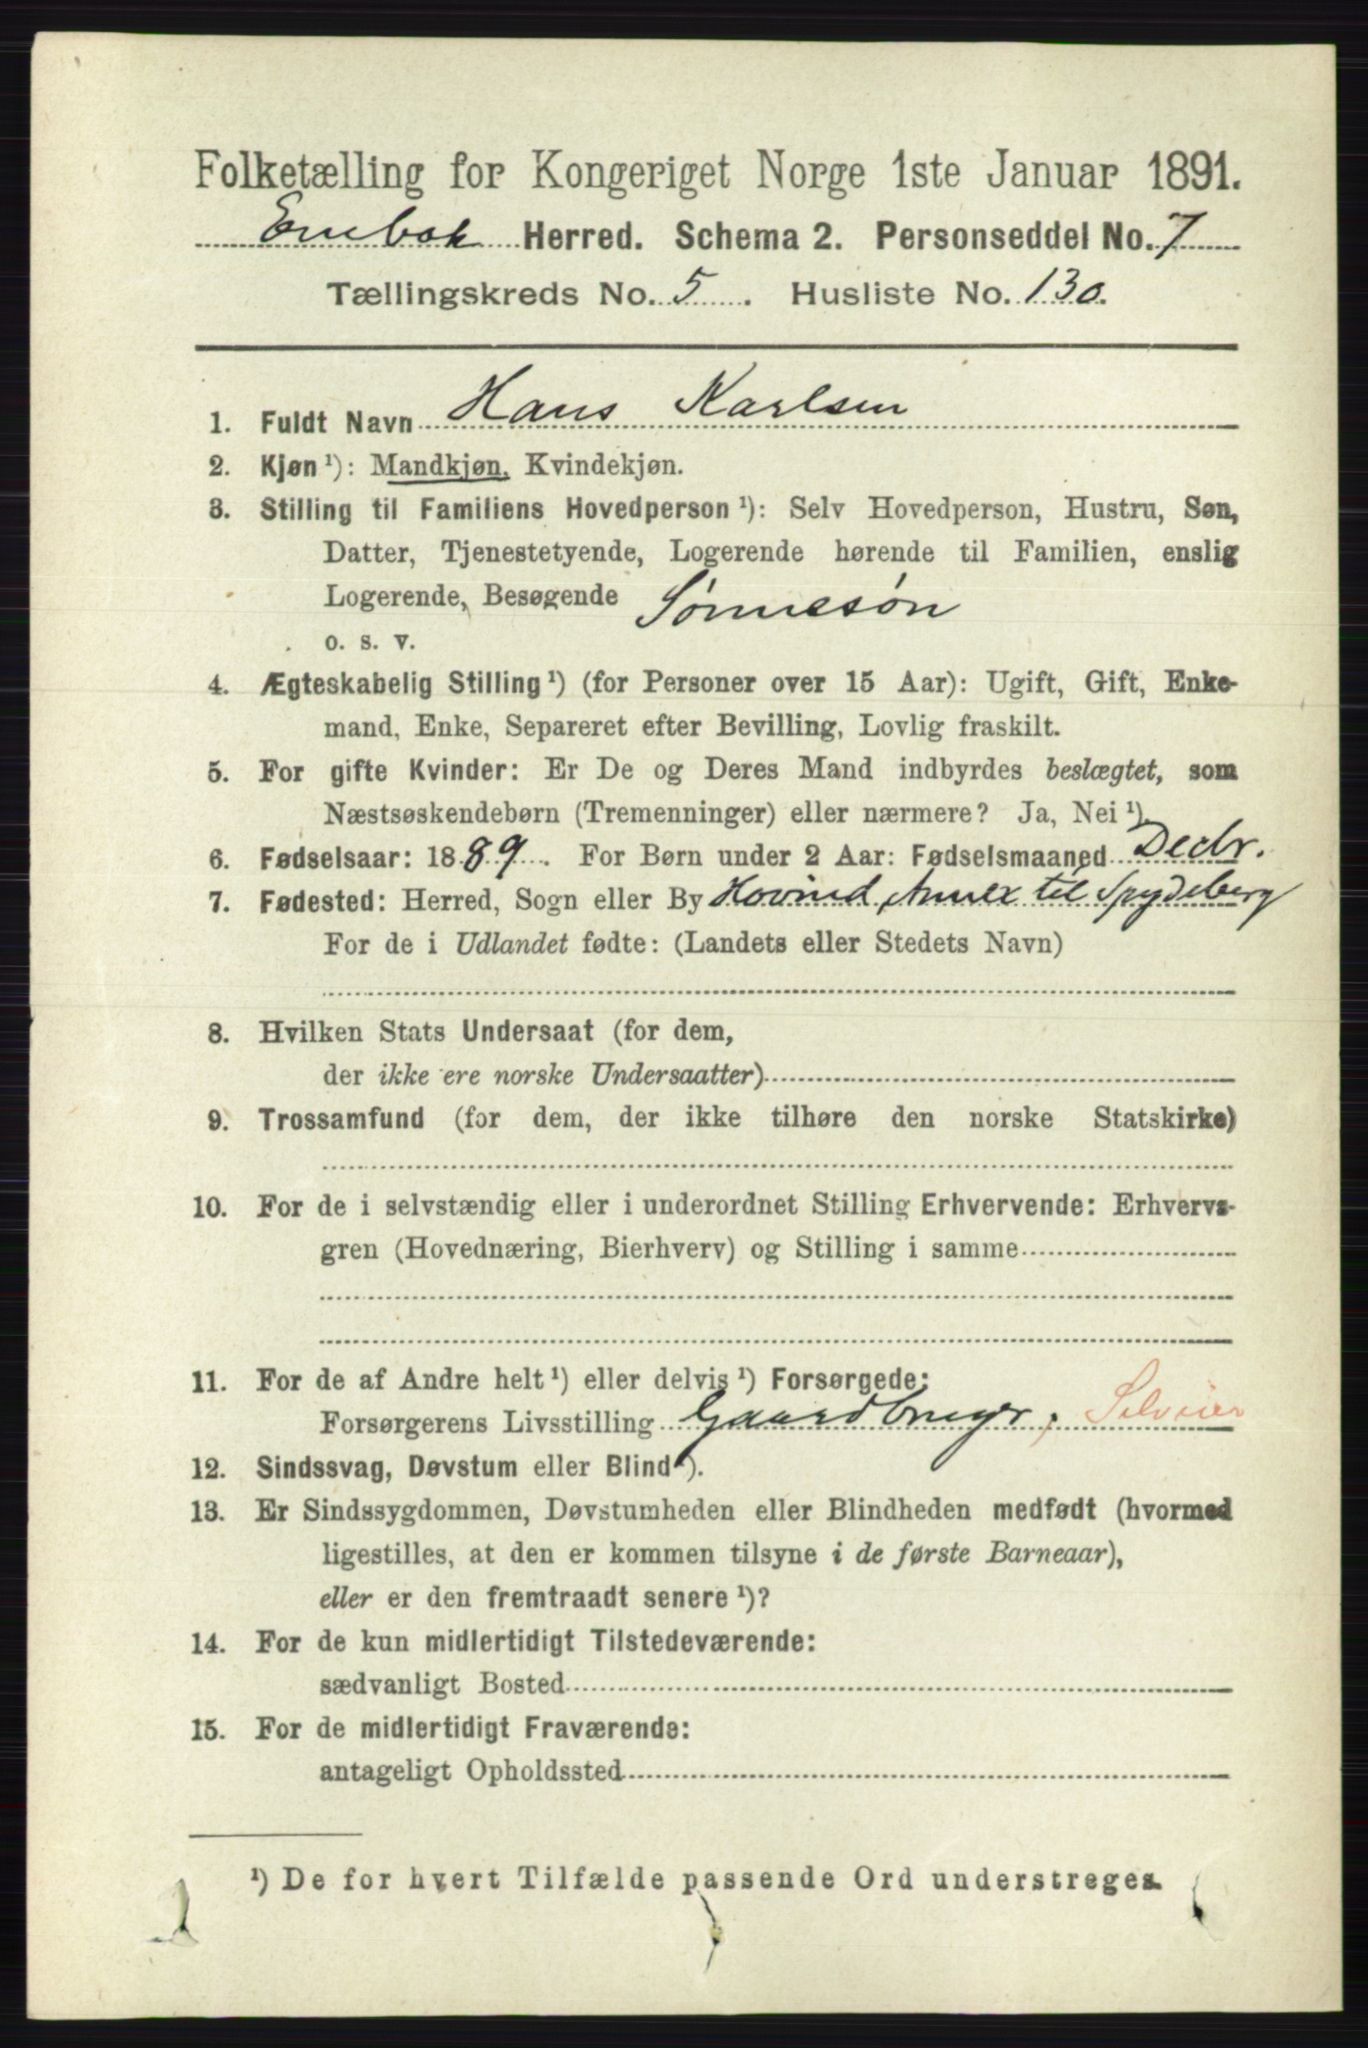 Folketælling for Kongeriget Norge 1ste Januar 1891.
Enebak Herred. Schema 2. Personseddel No. 7
Tællingskreds No. 5. Husliste No. 130.
1. Fuldt Navn Hans Karlsen
2. Kjøn ¹): Mandkjøn, Kvindekjøn.
3. Stilling til Familiens Hovedperson ¹): Selv Hovedperson, Hustru, Søn,
Datter, Tjenestetyende, Logerende hørende til Familien, enslig
Logerende, Besøgende Sønnesøn
o. s. v.
4. Ægteskabelig Stilling ¹) (for Personer over 15 Aar): Ugift, Gift, Enke-
mand, Enke, Separeret efter Bevilling, Lovlig fraskilt.
5. For gifte Kvinder: Er De og Deres Mand indbyrdes beslægtet, som
Næstsøskendebørn (Tremenninger) eller nærmere? Ja, Nei ¹)
6. Fødselsaar: 1889. For Børn under 2 Aar: Fødselsmaaned Decbr.
7. Fødested: Herred, Sogn eller By Hovind, Annex til Spydeberg
For de i Udlandet fødte: (Landets eller Stedets Navn)
8. Hvilken Stats Undersaat (for dem,
der ikke ere norske Undersaatter)
9. Trossamfund (for dem, der ikke tilhøre den norske Statskirke)
10. For de i selvstændig eller i underordnet Stilling Erhvervende: Erhvervs-
gren (Hovednæring, Bierhverv) og Stilling i samme
11. For de af Andre helt ¹) eller delvis ¹) Forsørgede:
Forsørgerens Livsstilling Gaardbruger, Selveier
12. Sindssvag, Døvstum eller Blind ¹).
13. Er Sindssygdommen, Døvstumheden eller Blindheden medfødt (hvormed
ligestilles, at den er kommen tilsyne i de første Barneaar),
eller er den fremtraadt senere ¹)?
14. For de kun midlertidigt Tilstedeværende:
sædvanligt Bosted
15. For de midlertidigt Fraværende:
antageligt Opholdssted
¹) De for hvert Tilfælde passende Ord understreges.